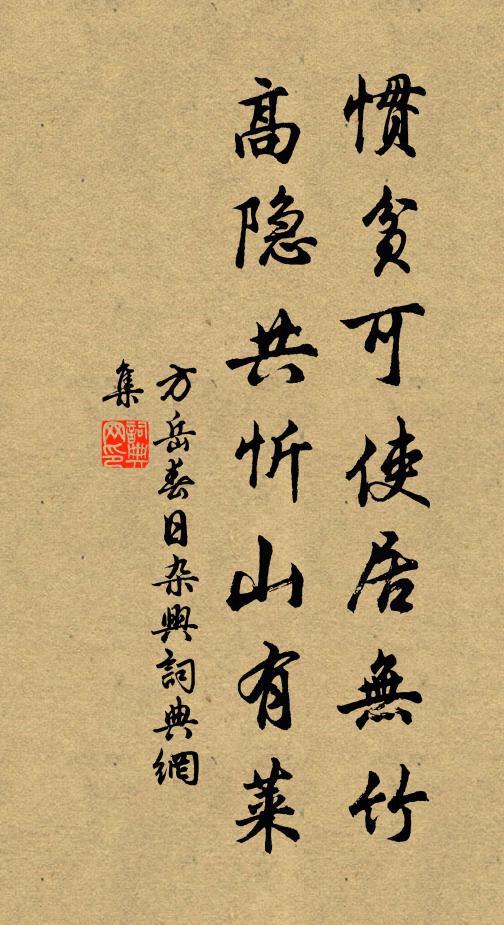 惯贫可使居無竹
高隐共忻山有菜
方岳春日杂興詞典網
集
詞典网印